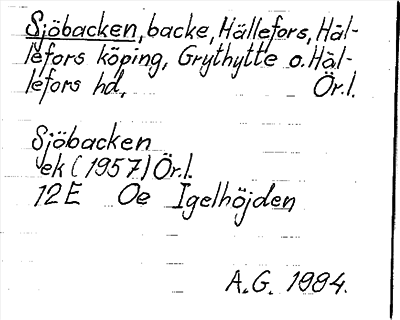 Sjöbacken, backe, Hällefors, Häl-
lefors köping, Grythytte o. Häl-
lefors hd, Ör.l.
Sjöbacken
ek (1957) Ör.l.
12E Oe Igelhöjden
A.G. 1984.